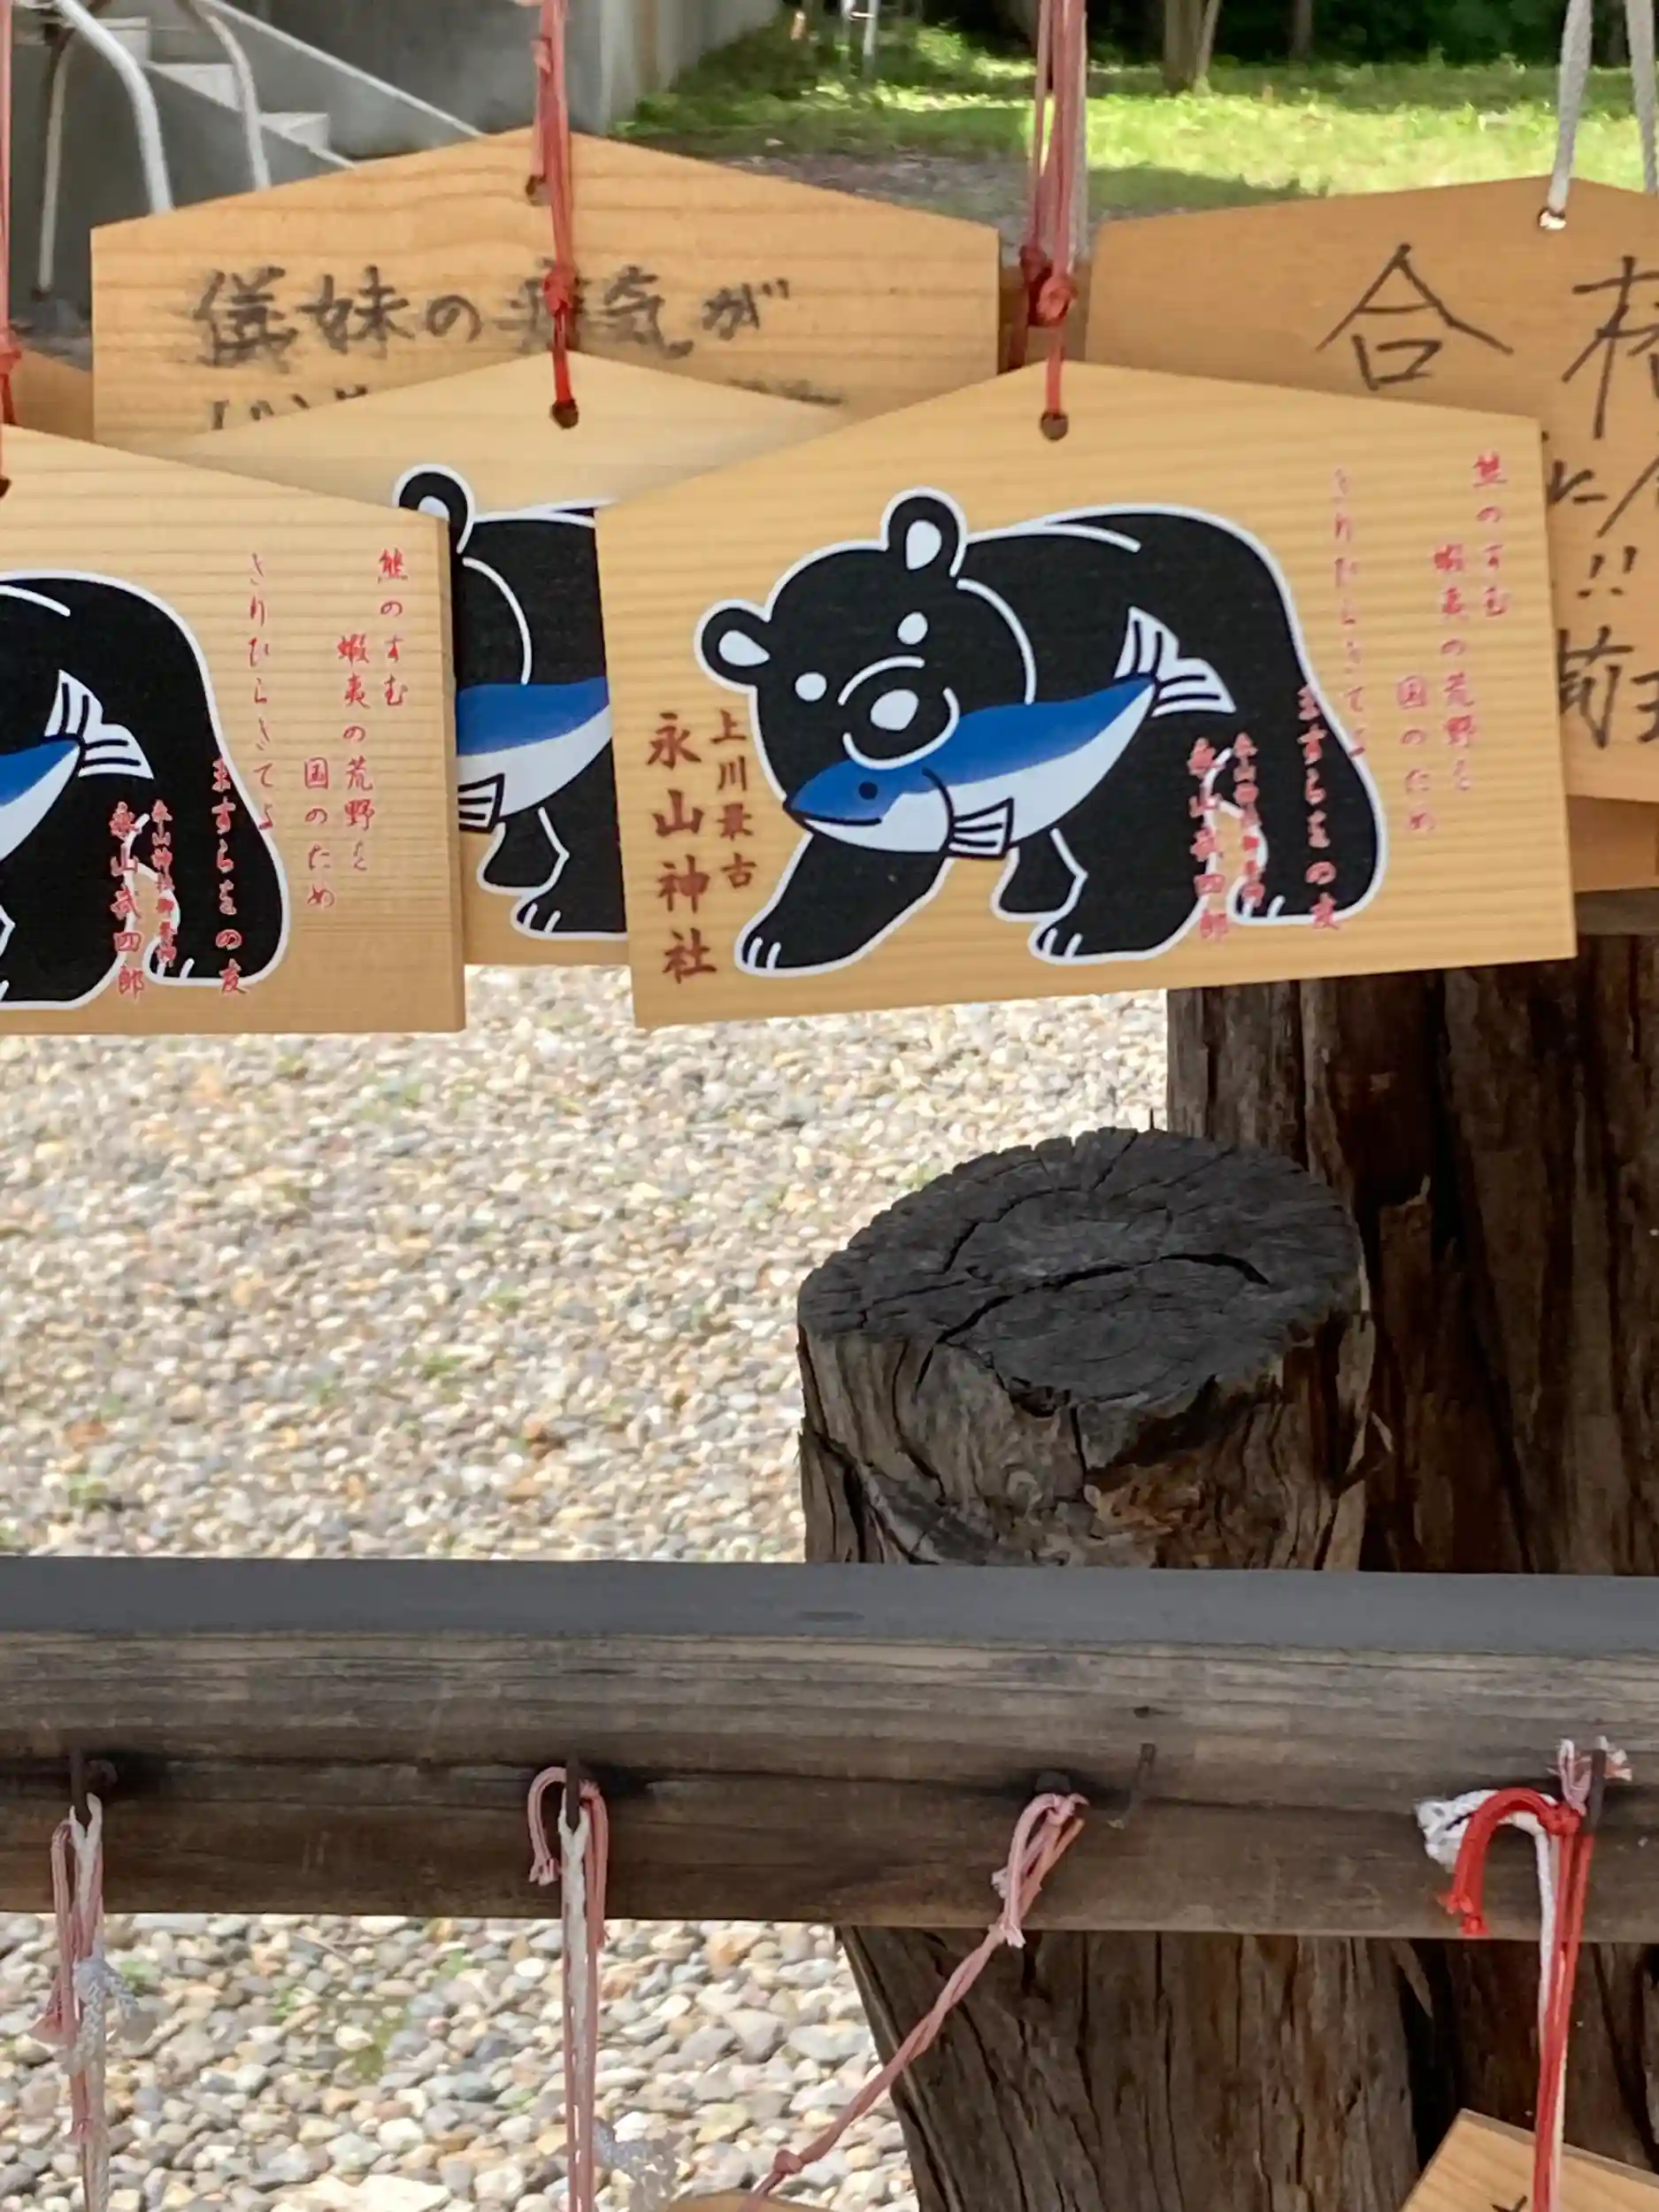 妹の病気が
合
熊のすむ
蝦夷の荒野を
国のため
きりひらきてよ
ますらをの友
永山神社御祭神
永山武四郎
熊のすむ
蝦夷の荒野を
国のため
きりひらきてよ
ますらをの友
永山神社御祭神
永山武四郎
上川最古
永山神社